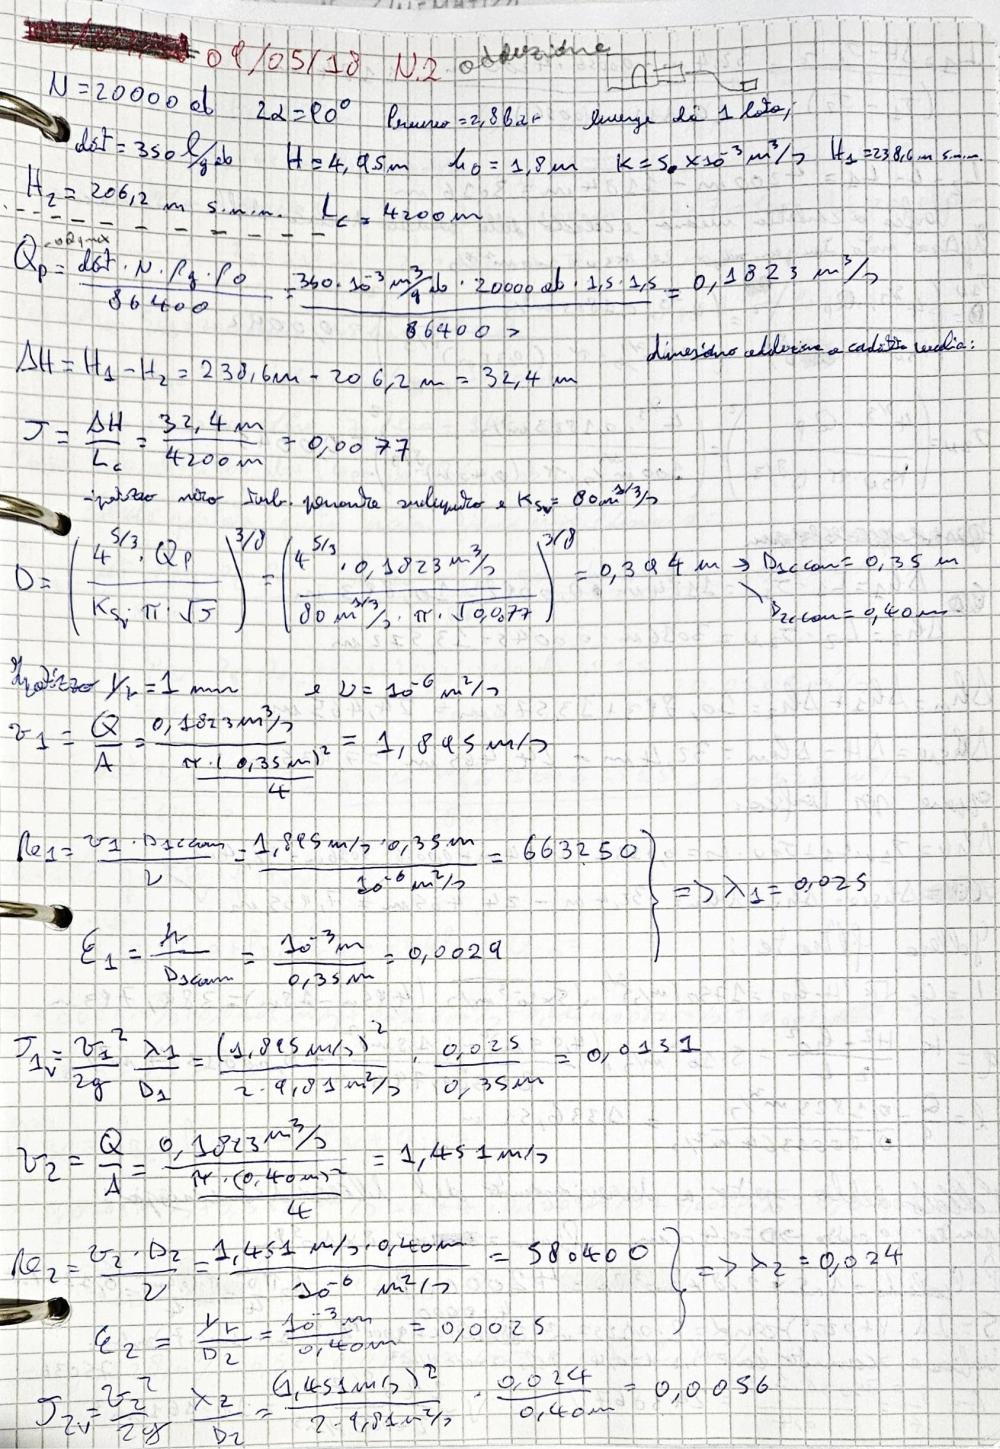 09/05/18 N.2 adduzione
N = 20000 ab 2α = 90° = 2,8 bar da 1 lato,
dot = 350 l/g ab H = 4,95 m h0 = 1,8 m K = 5 × 10⁻³ m³/s H1 = 238,6 m s.m.m.
H2 = 206,2 m s.m.m. Lc = 4200 m
Qp = dot · N · ρg · ρo / 86400 = 350 · 10⁻³ m³/g ab · 20000 ab · 1,5 · 1,5 / 86400 s = 0,1823 m³/s
adduzione a media:
ΔH = H1 - H2 = 238,6 m - 206,2 m = 32,4 m
J = ΔH / Lc = 32,4 m / 4200 m = 0,0077
ipotizzo moto turb. e Ksv = 80 m^1/3/s
D = (4^5/3 · Qp / Ksv · π · √J)^3/8 = (4^5/3 · 0,1823 m³/s / 80 m^1/3/s · π · √0,0077)^3/8 = 0,394 m → D1comm = 0,35 m
D2comm = 0,40 m
Ipotizzo γr = 1 mm e ν = 10⁻⁶ m²/s
v1 = Q / A = 0,1823 m³/s / π · (0,35 m)² / 4 = 1,895 m/s
Re1 = v1 · D1comm / ν = 1,895 m/s · 0,35 m / 10⁻⁶ m²/s = 663250
=> λ1 = 0,025
ε1 = / D1comm = 10⁻³ m / 0,35 m = 0,0029
J1v = v1² / 2g λ1 / D1 = (1,895 m/s)² / 2 · 9,81 m²/s · 0,025 / 0,35 m = 0,0131
v2 = Q / A = 0,1823 m³/s / π · (0,40 m)² / 4 = 1,451 m/s
Re2 = v2 · D2 / ν = 1,451 m/s · 0,40 m / 10⁻⁶ m²/s = 580400
=> λ2 = 0,024
ε2 = γr / D2 = 10⁻³ m / 0,40 m = 0,0025
J2v = v2² / 2g λ2 / D2 = (1,451 m/s)² / 2 · 9,81 m²/s · 0,024 / 0,40 m = 0,0056